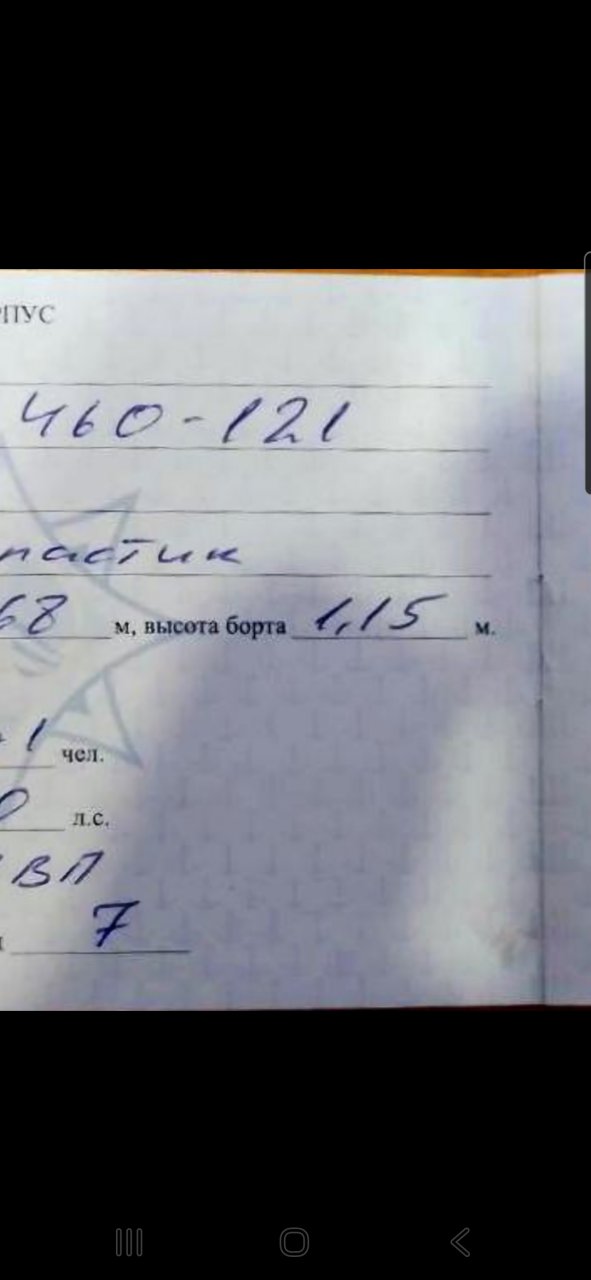 РПУС
460-121
пластик
68 м, высота борта 1,15 м.
1 чел.
0 л.с.
ВП
7